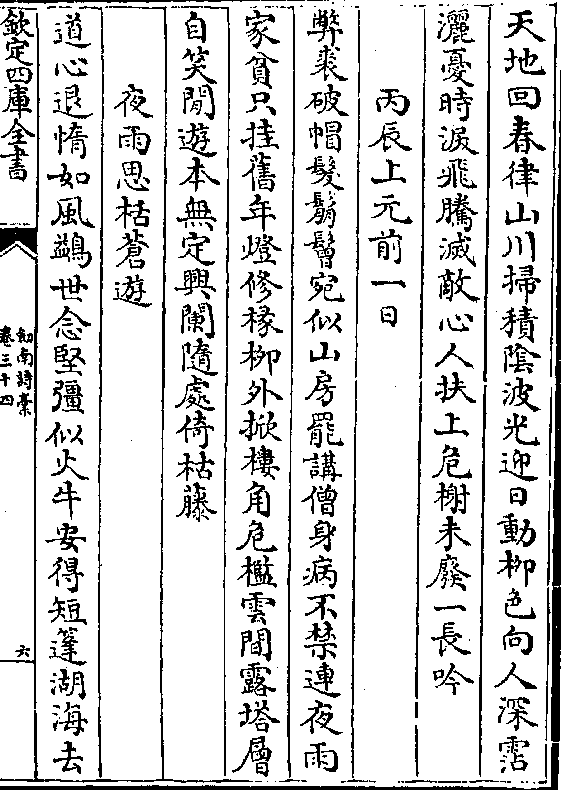 天地回春律山川掃積陰波光迎日動柳色向人深霑
灑憂時淚飛騰滅敵心人扶上危榭未廢一長吟
丙辰上元前一日
弊裘破帽髮鬅鬙宛似山房罷講僧身病不禁連夜雨
家貧只挂舊年燈修椽栁外掀樓角危檻雲間露塔層
自笑閒遊本無定興闌隨處倚枯藤
夜雨思栝蒼遊
道心退惰如風鷁世念堅彊似火牛安得短篷湖海去
欽定四庫全書
劍南詩藳
卷三十四
六